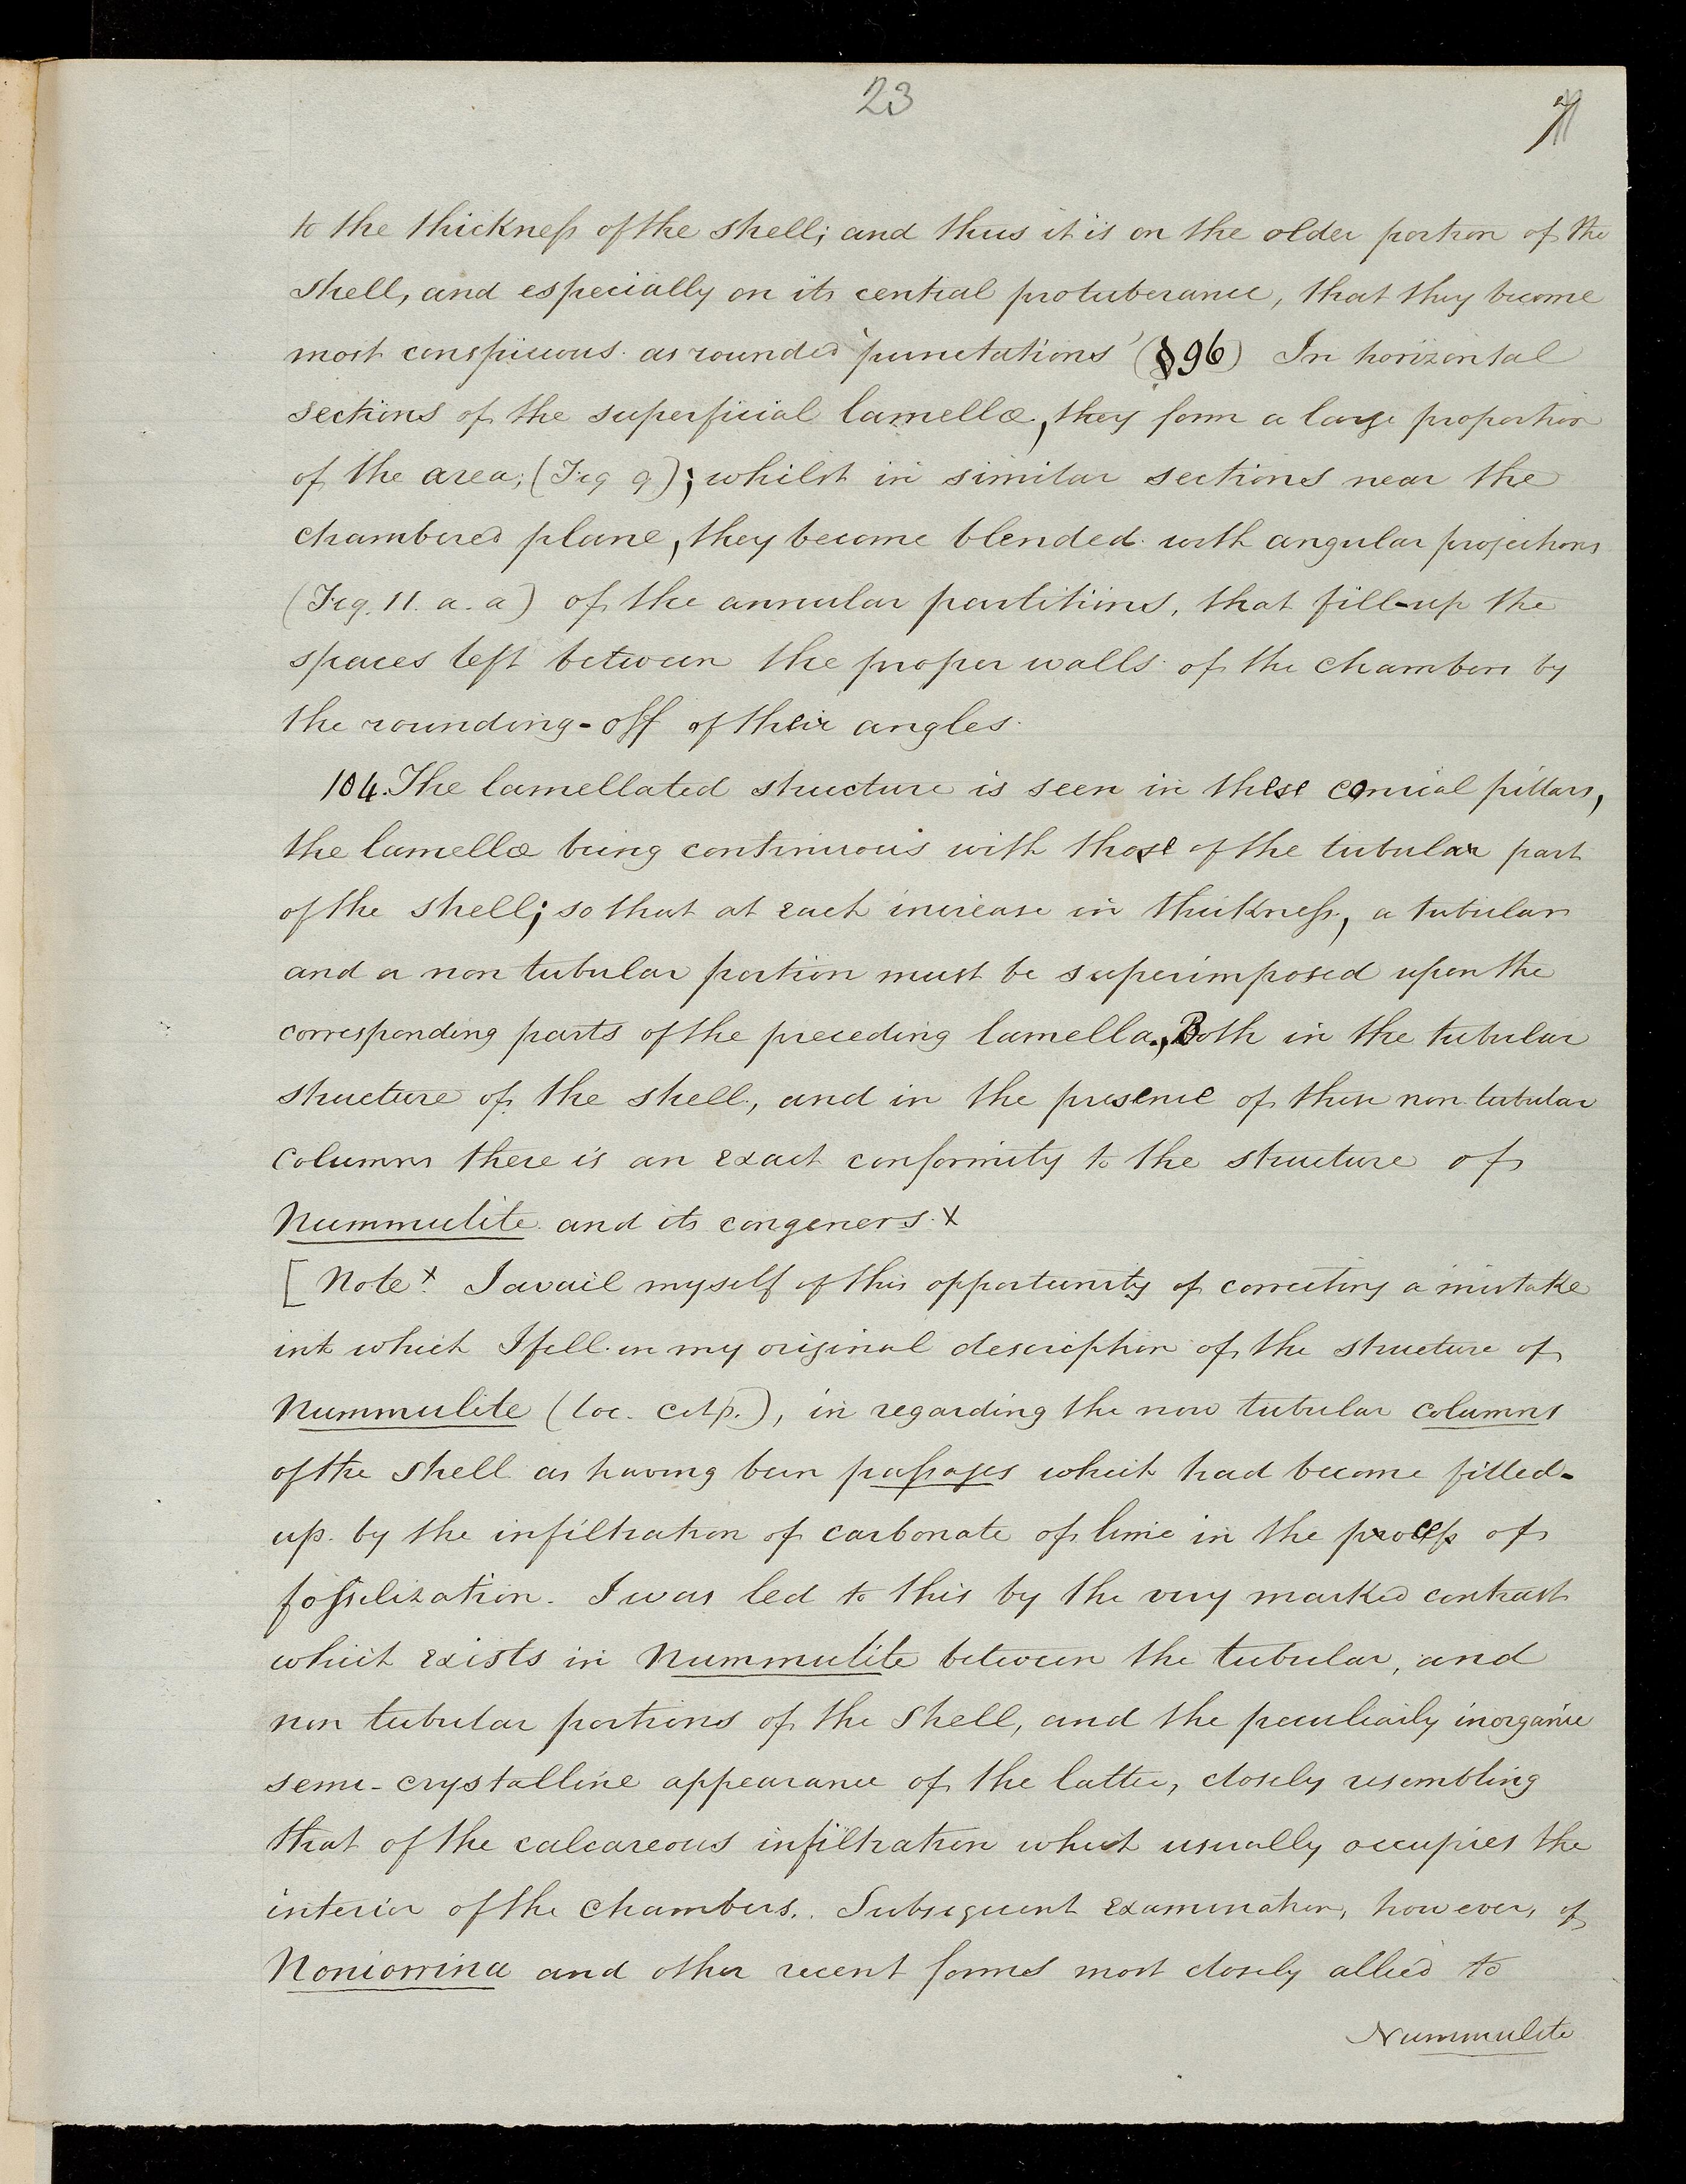 23
to the thickness of the shell; and thus it is on the older portion of the
shell, and especially on its central protuberance, that they become
most conspicuous as rounded 'punctations' (§96) In horizontal
sections of the superficial lamellæ, they form a large proportion
of the area, (Fig 9); whilst in similar sections near the
chambered plane, they become blended with angular projections
(Fig. 11. a. a) of the annular partitions, that fill-up the
spaces left between the proper walls of the chambers by
the rounding-off of their angles.
104. The lamellated structure is seen in these conical pillars,
the lamellæ being continuous with those of the tubular part
of the shell; so that at each increase in thickness, a tubular
and a non tubular portion must be superimposed upon the
corresponding parts of the preceding lamella. Both in the tubular
structure of the shell, and in the presence of these non tubular
columns there is an exact conformity to the structure of
Nummulite and its congeners. x
[Note x. I avail myself of this opportunity of correcting a mistake
into which I fell in my original description of the structure of
Nummulite (loc. cit. p. ), in regarding the non tubular columns
of the shell as having been passages which had become filled-
up by the infiltration of carbonate of lime in the process of
fossilization. I was led to this by the very marked contrast
which exists in Nummulite between the tubular, and
non tubular portions of the shell, and the peculiarly inorganic
semi-crystalline appearance of the latter, closely resembling
that of the calcareous infiltration which usually occupies the
interior of the chambers. Subsequent examination, however, of
Nonionina and other recent forms most closely allied to
Nummulite